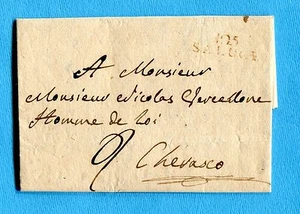 105
SALUCES
A Monsieur
Monsieur Nicolas Vercellone
Homme de Loi
Cherasco